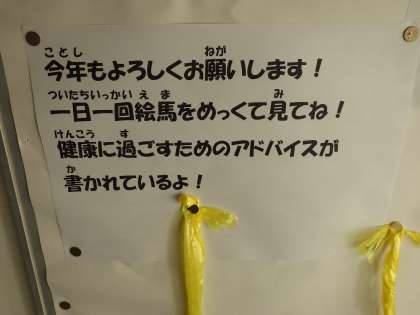 今年もよろしくお願いします！
一日一回絵馬をめっくて見てね！
健康に過ごすためのアドバイスが
書かれているよ！